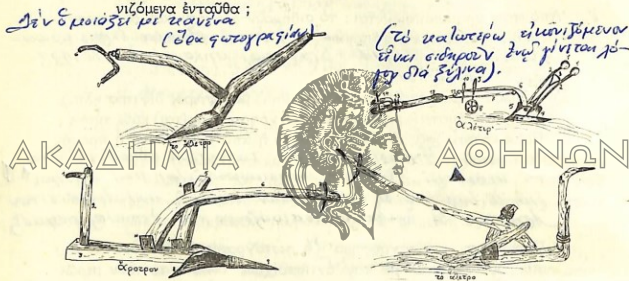 νιζόμενα ἐνταῦθα ;
Δέν ὁμοιάζει μέ κανένα
(ὅρα φωτογραφίαν)
(τό κατωτέρω εἰκονιζόμενον
εἶναι σιδηροῦν ἐνῷ γίνεται λό-
γος διά ξύλινα).
το ἀλετρο
ἀλέτρι
ΑΚΑΔΗΜΙΑ ΑΘΗΝΩΝ
ἄροτρον